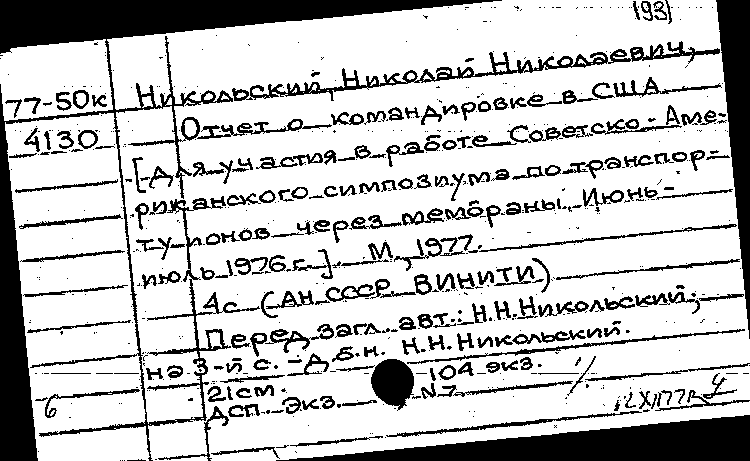 193
77-50к Никольский, Николай Николаевич,
4130 Отчет о командировке в США
[для участия в работе Советско-Аме-
риканского симпозиума по транспор-
ту ионов через мембраны. Июнь-
июль 1976 г.]. М., 1977.
4с (АН СССР. ВИНИТИ)
Перед загл. авт.: Н.Н.Никольский;
на 3-й с. - д.б.н. Н.Н.Никольский.
21см. 104 экз.
6 ДСП. Экз. N7